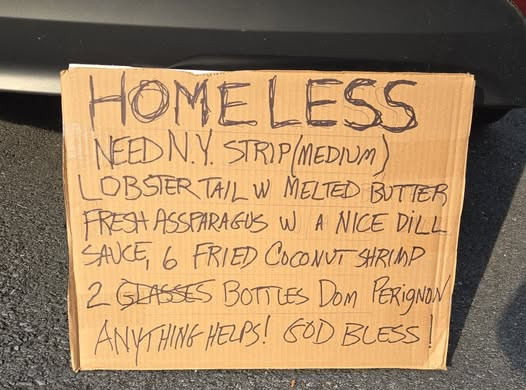 HOMELESS
NEED N.Y. STRIP (MEDIUM)
LOBSTER TAIL W MELTED BUTTER
FRESH ASSPARAGUS W A NICE DILL
SAUCE, 6 FRIED COCONUT SHRIMP
2 GLASSES BOTTLES DOM PERIGNON
ANYTHING HELPS! GOD BLESS!